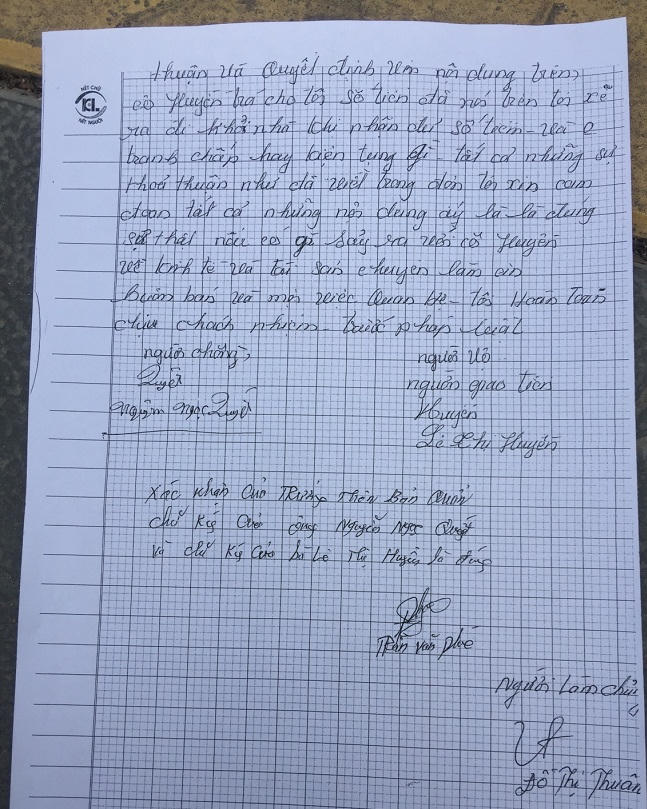 NÉT CHỮ
KL
NẾT NGƯỜI
thuận và Quyết định trên nội dung trên,
cô Huyền trả cho tôi số tiền đã nói trên tôi sẽ
ra đi khỏi nhà khi nhận đủ số tiền và
tranh chấp hay kiện tụng gì - tất cả những sự
thoả thuận như đã viết trong đơn tôi xin cam
đoan tất cả những nội dung ấy là là đúng
sự thật nếu có gì sảy ra với cô Huyền
về kinh tế và tài sản chuyện làm ăn
buôn bán và mọi việc Quan hệ - tôi Hoàn Toàn
chịu chách nhiệm - trước pháp luật
người chồng, người vô
Quyết người giao tiền
nguyễn ngọc Quyết Huyền
Lê thị Huyền
Xác nhận của Trưởng Thôn Bản Quản
chữ ký của ông Nguyễn Ngọc Quyết
và chữ ký của bà Lê Thị Huyền là đúng
Trần văn
Người làm chứng
Đỗ Thị Thuân